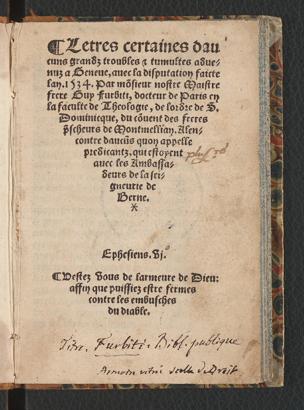 ¶Letres certaines dau
cuns grandz troubles ⁊ tumultes aduenuz
a Geneue, auec la disputation faicte
lan. 1534. Par mõsieur nostre Maistre
frere Guy Furbiti, docteur de Paris en
la faculte de Theologie, de lordre de S.
Dominicque, du cõuent des freres
p̃scheurs de Montmellian. Alen-
contre daucũs quon appelle
predicantz. qui estoyent
auec les Ambassa-
deurs de la sei-
gneurie de
Berne.
*
Ephesiens. vj.
¶Vestez vous de larmeure de Dieu:
affin que puissiez estre fermes
contre les embusches
du diable.
Furbiti. Bibl. publique